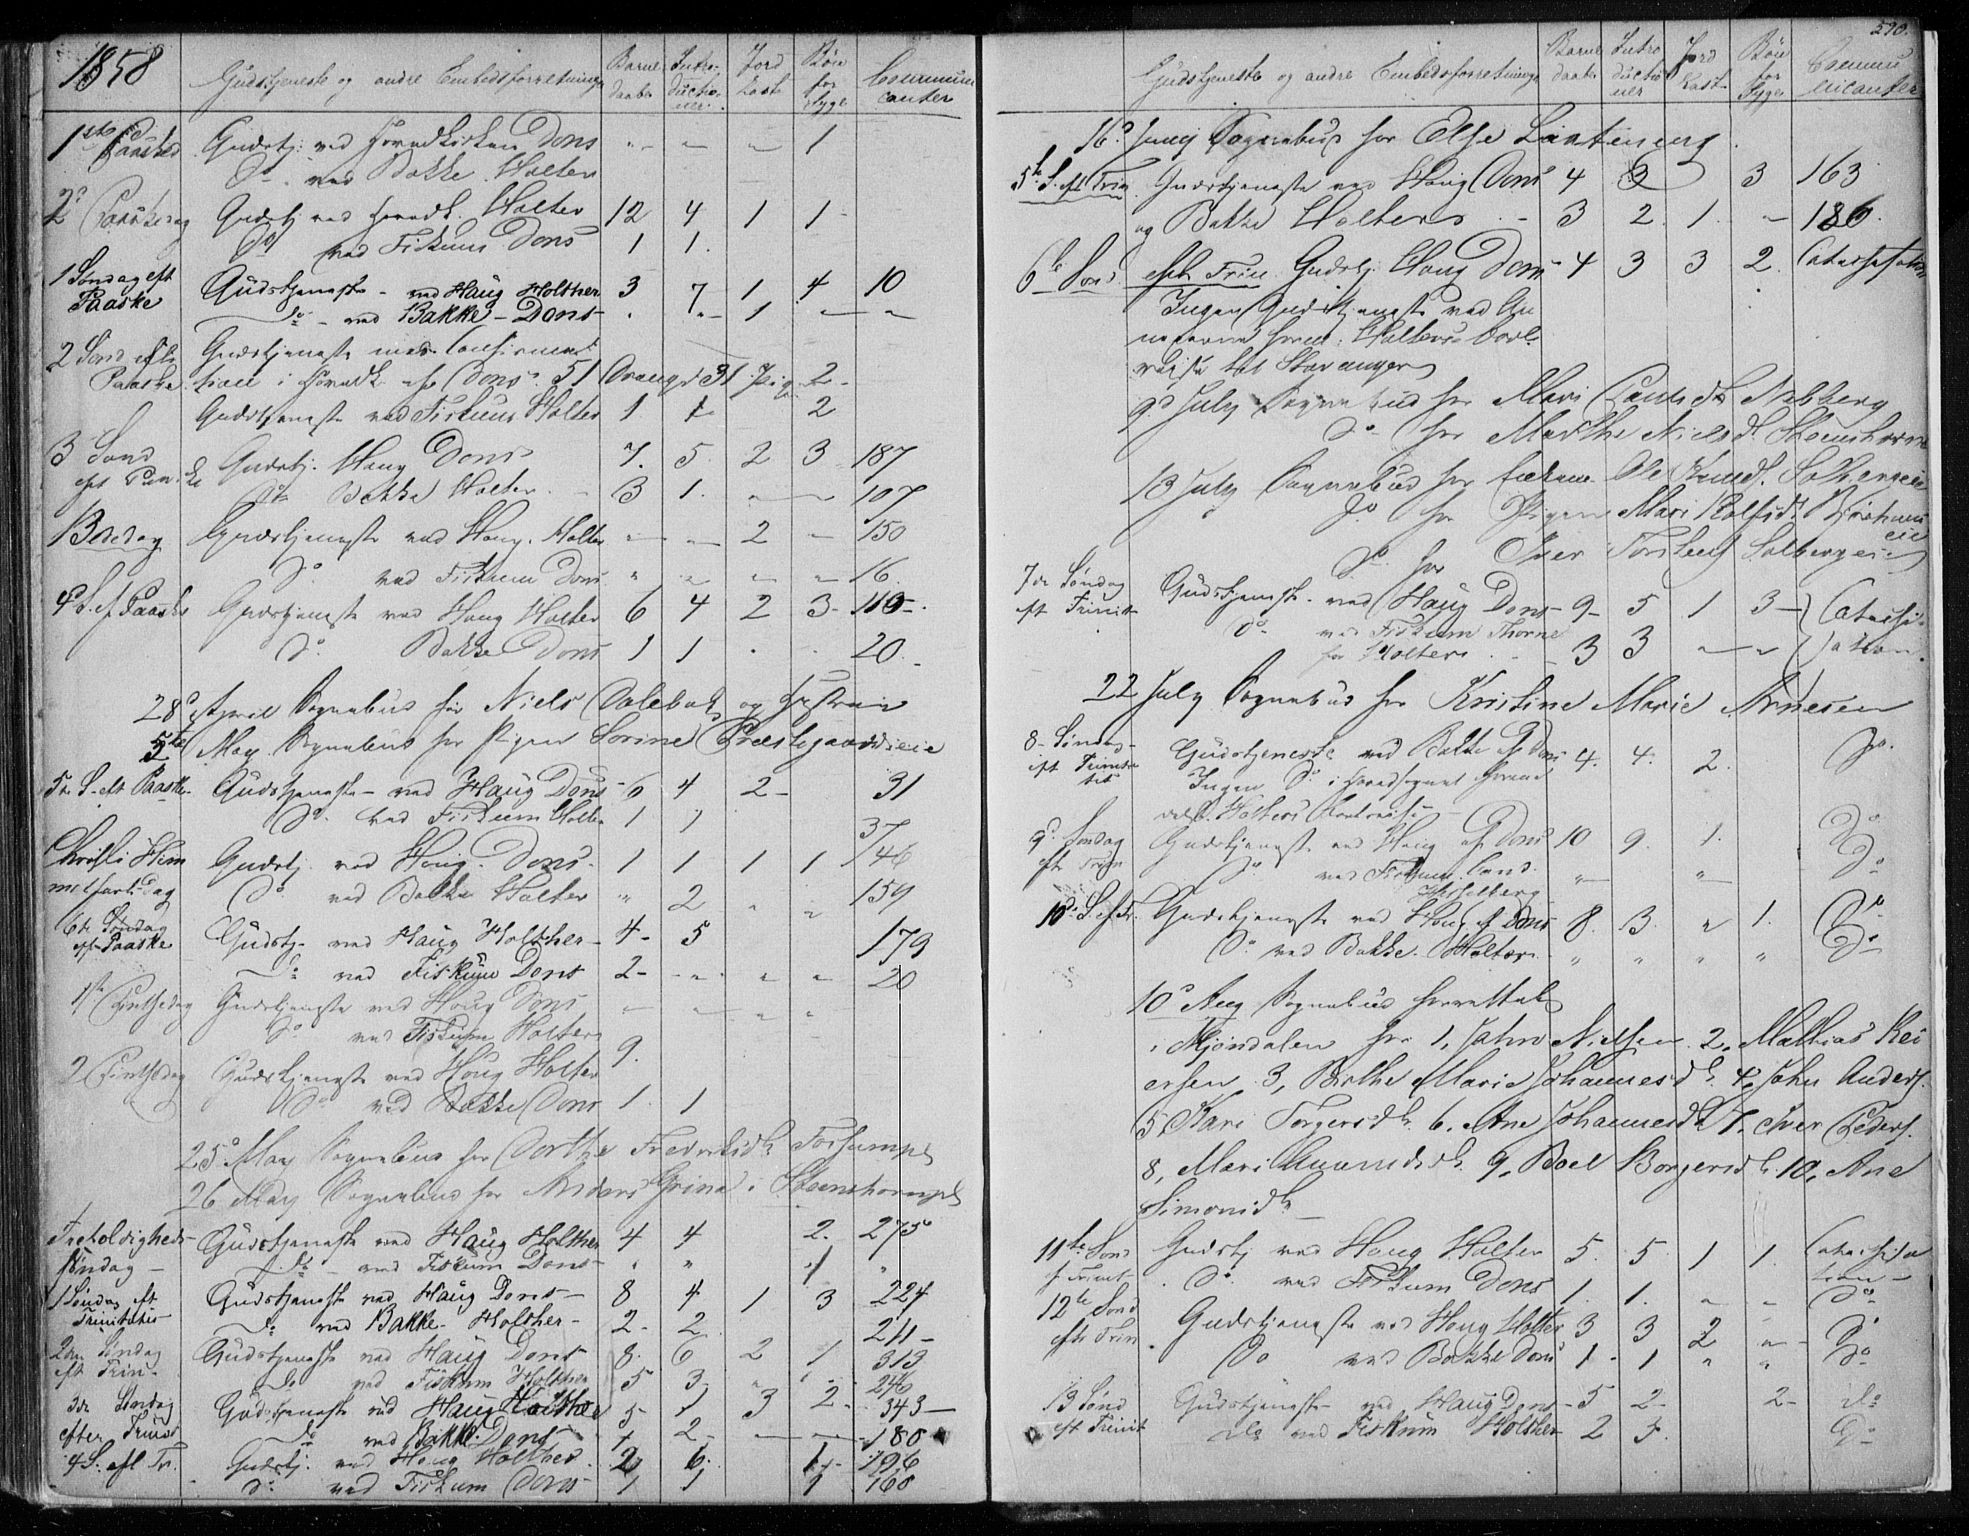 1858 Gudstjeneste og andre Embedsforretninger Barne daabe Introductioner Jord kast Bøn for Syge Communicanter
1ste Paasked Gudstj. ved Hovedkirken Dons " – – – 1
Do ved Bakke Holter
2d Paaskedag Gudstj ved Hovedk. Holter 12 4 1 1
Do ved Fiskum Dons 1 1
1 Søndag eft Paaske Gudstjeneste – ved Haug Holther 3 7 1 4 10
Do – ved Bakke – Dons – " " 1 – –
2 Sønd efter Paaske Gudstjeneste med Confirma-
tion i Hovedk. af Dons. 51 Drenge 31 Pig. 2 –
Gudstjeneste ved Fiskum Holter 1 1 2
3 Sønd eft Paaske Gudstj. Haug Dons 7. 5 2 3 187
Do Bakke Holter 3 1. – – 107
Bededag Gudstjeneste ved Haug. Holter – – 2 – 150
Do ved Fiskum Dons " – – – 16.
4 S. ef Paaske Gudstjeneste ved Haug Holter 6 4 2 3 – 110
Do Bakke Dons 1 1 . . 20.
28d April Sognebud for Niels Dalebak og Hustrue
5te May Sognebud for Pigen Sorine Præstegaardseie
5te S. eft Paaske Gudstjeneste – ved Haug Dons – 6 4 2 – 31
Do ved Fiskum Holter 1 1 37
Christi Himmelfartsdag Gudstj ved Haug. Dons. 1 1 1 1 146
Do ved Bakke Holter " 2 " " 159
6te Søndag eft Paaske Gudstj. ved Haug Holther – 4 – 5 179
Do ved Fiskum Dons 2 – – " " – 20
1ste Pintsedag Gudstjeneste ved Haug Dons – – " "
Do ved Fiskum Holter
2 Pintsedag Gudstjeneste ved Haug Holter 9.
Do ved Bakke Dons 1. 1
25d May Sognebud for Dorthe Fredriksdtr
26 May Sognebud for Anders Grina i
Trefoldigheds-Søndag – Gudstjeneste ved Haug Holther 4 4 2. 275
Do – ved Fiskum Dons – " " 1 "
1 Søndag eft Trinitatis Gudstjeneste ved Haug Dons – 8 4 1 3 224
Do ved Bakke – Holther – 2 – 2 211 –
2den Søndag eft Trin – Gudstjeneste ved Haug Dons 8. 6 2 1 313
Do ved Fiskum Holther 5 3 " – 246
3de Søndag efter Trinit Gudstjeneste ved Haug Holther 5 – 1 3 2 – 343 –
Do ved Bakke Dons 1 2 – – – 180
4 S. eft Tr. Gudstj. ved Haug Holther 2 6. 1 – 196
Do ved Fiskum Dons 1 1 1 168
590.
Gudstjeneste og andre Embedsforretninger Barne daabe Introductioner Jord Kast Bøn for Syge Communicanter
16d Junij Sognebud for Else
5te S. eft Trin. Gudstjeneste ved Haug Dons 4 3 3 163
og Bakke Holter – 3 2 1. – 186.
6te Sønd eft Trin Gudstj. Haug Dons 4 3 3 2. Catechisation
Ingen Gudstjeneste ved An-
nexerne form. Holters bort-
reise til Stavanger
9d July Sognebud for Mari
Do for Marthe Nielsd.
13 July Sognebud for Enkem. Ole Knuds. Solbergeie
Do for Pigen Mari Rolfsd.
Do for Iver Torstens Solbergeie
7de Søndag eft Trinit Gudstjeneste – ved Haug Dons – 9 – 5 1 3 – Catechi-
Do ved Fiskum Thorne
for Holter. 3 3 – – sation.
22 July Sognebud for Kristine Marie Arnesen
8 – Søndag – eft Trinitatis Gudstjeneste ved Bakke af Dons 4. 4. 2. Do.
Ingen Do i Hovedsognet formed
Holters Bortreise –
9d Søndag eft Trin Gudstjeneste ved Haug af Dons 10 9. 1. Do
Do ved Fiskum Cand.
Hesselberg " – " – Do
10de S. ef Tr. Gudstjeneste ved Haug af Dons 8. 3. " 1. Do
Do ved Bakke. Holter. " " " " Do
10d Aug Sognebud forrettet
i Mjøndalen for 1, John Nielsen 2, Mathias Rei-
ersen 3, Birthe Marie Johannesdtr. 4, John Anders.
5, Kari Torgersdtr. 6. Ane Johannesdtr 7. Iver Peders.
8, Mari Amundsdtr. 9, Boel Borgersdtr. 10, Ane
Simonsdtr –
11te Sønd f. Trinit Gudstj ved Haug Holter 5. 5. 1 1. Catechisa-
Do ved Fiskum Dons 1. 1. – – tion –
12te Sønd eft Trin Gudstjeneste ved Haug Holter 3 3 2 " – Do
Do ved Bakke Dons 1 – 1 " " Do
13 Sønd eft Trinit Gudstjeneste – ved Haug Dons – 5 2 – 2 – Do
Do ved Fiskum Holther 2 3. Do